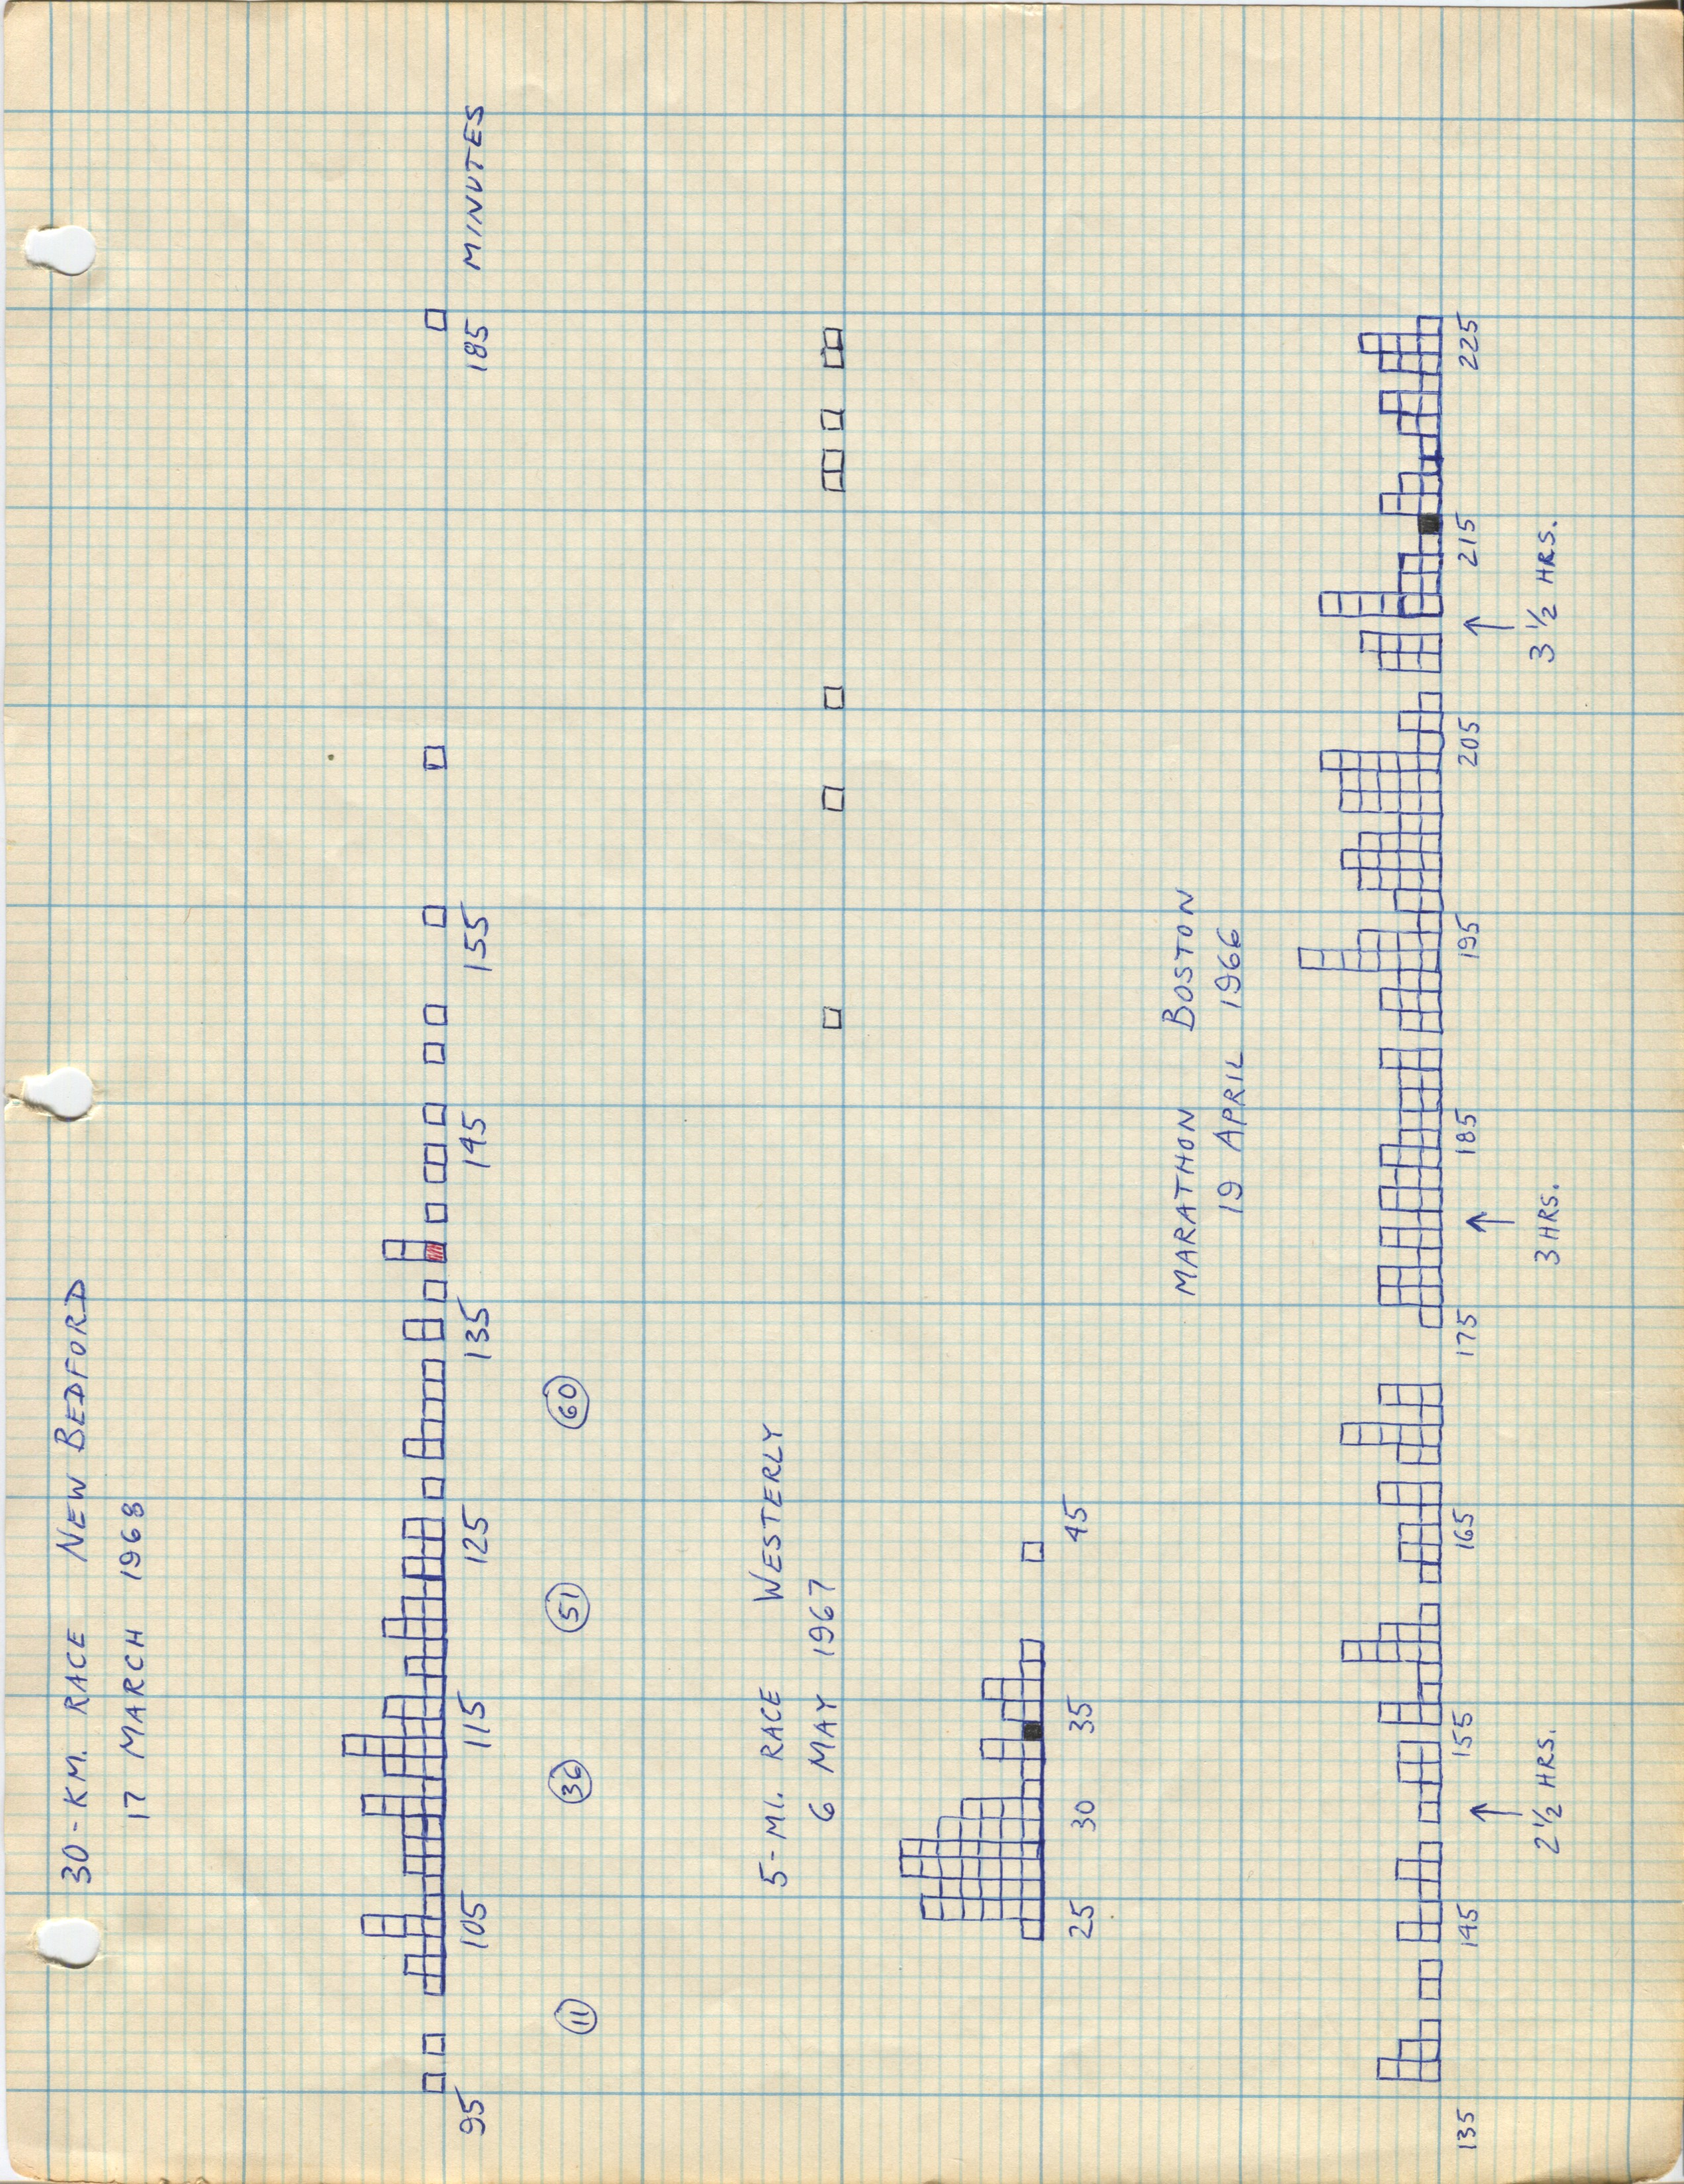 30-KM. RACE NEW BEDFORD
17 MARCH 1968
95 105 115 125 135 145 155 185 MINUTES
11 36 51 60
5-MI. RACE WESTERLY
6 MAY 1967
25 30 35 45
MARATHON BOSTON
19 APRIL 1966
135 145 155 165 175 185 195 205 215 225
2 1/2 HRS. 3 HRS. 3 1/2 HRS.